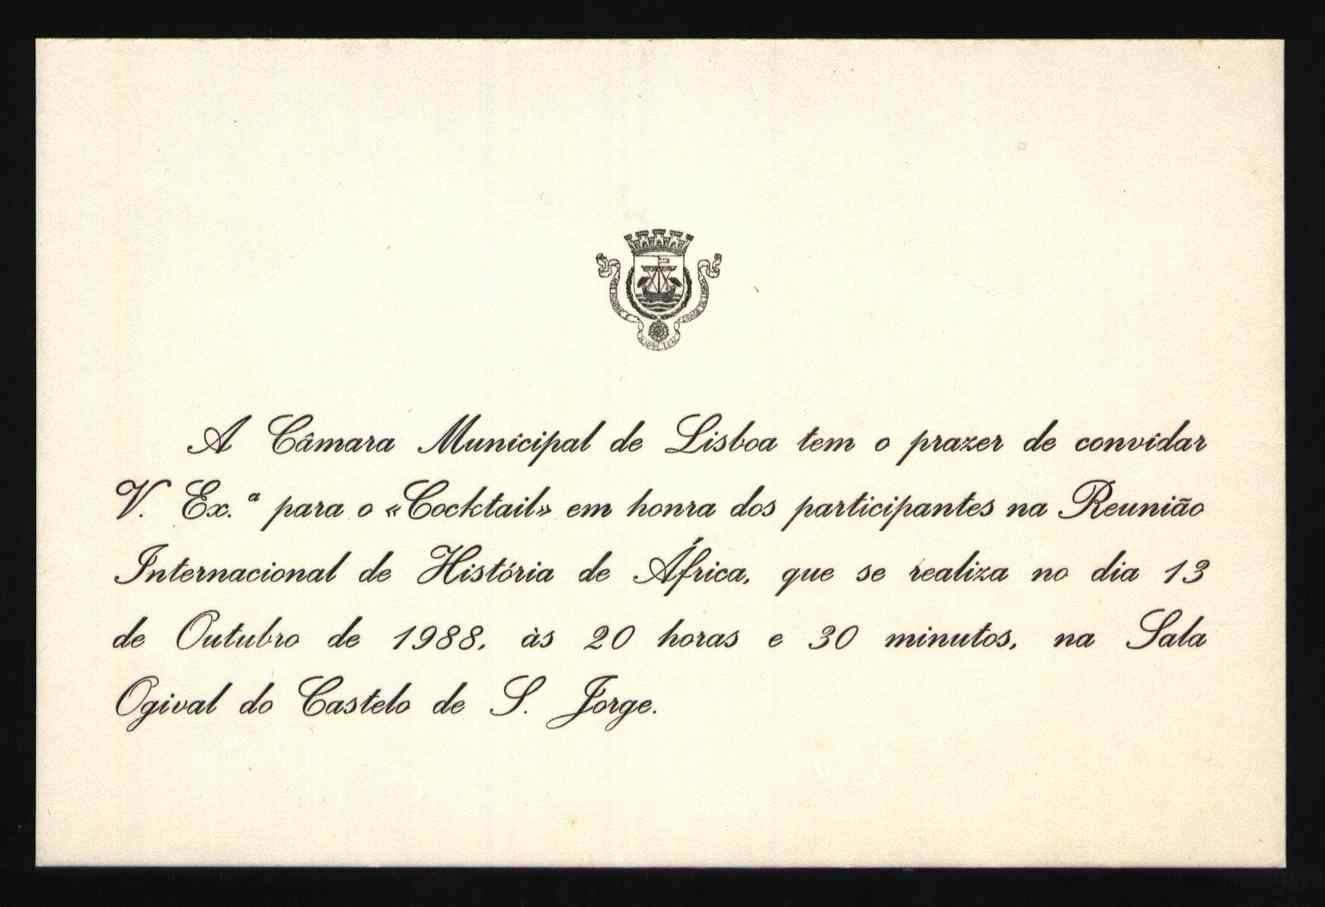 A Câmara Municipal de Lisboa tem o prazer de convidar
V. Ex.ª para o «Cocktail» em honra dos participantes na Reunião
Internacional de História de África, que se realiza no dia 13
de Outubro de 1988, às 20 horas e 30 minutos, na Sala
Ogival do Castelo de S. Jorge.